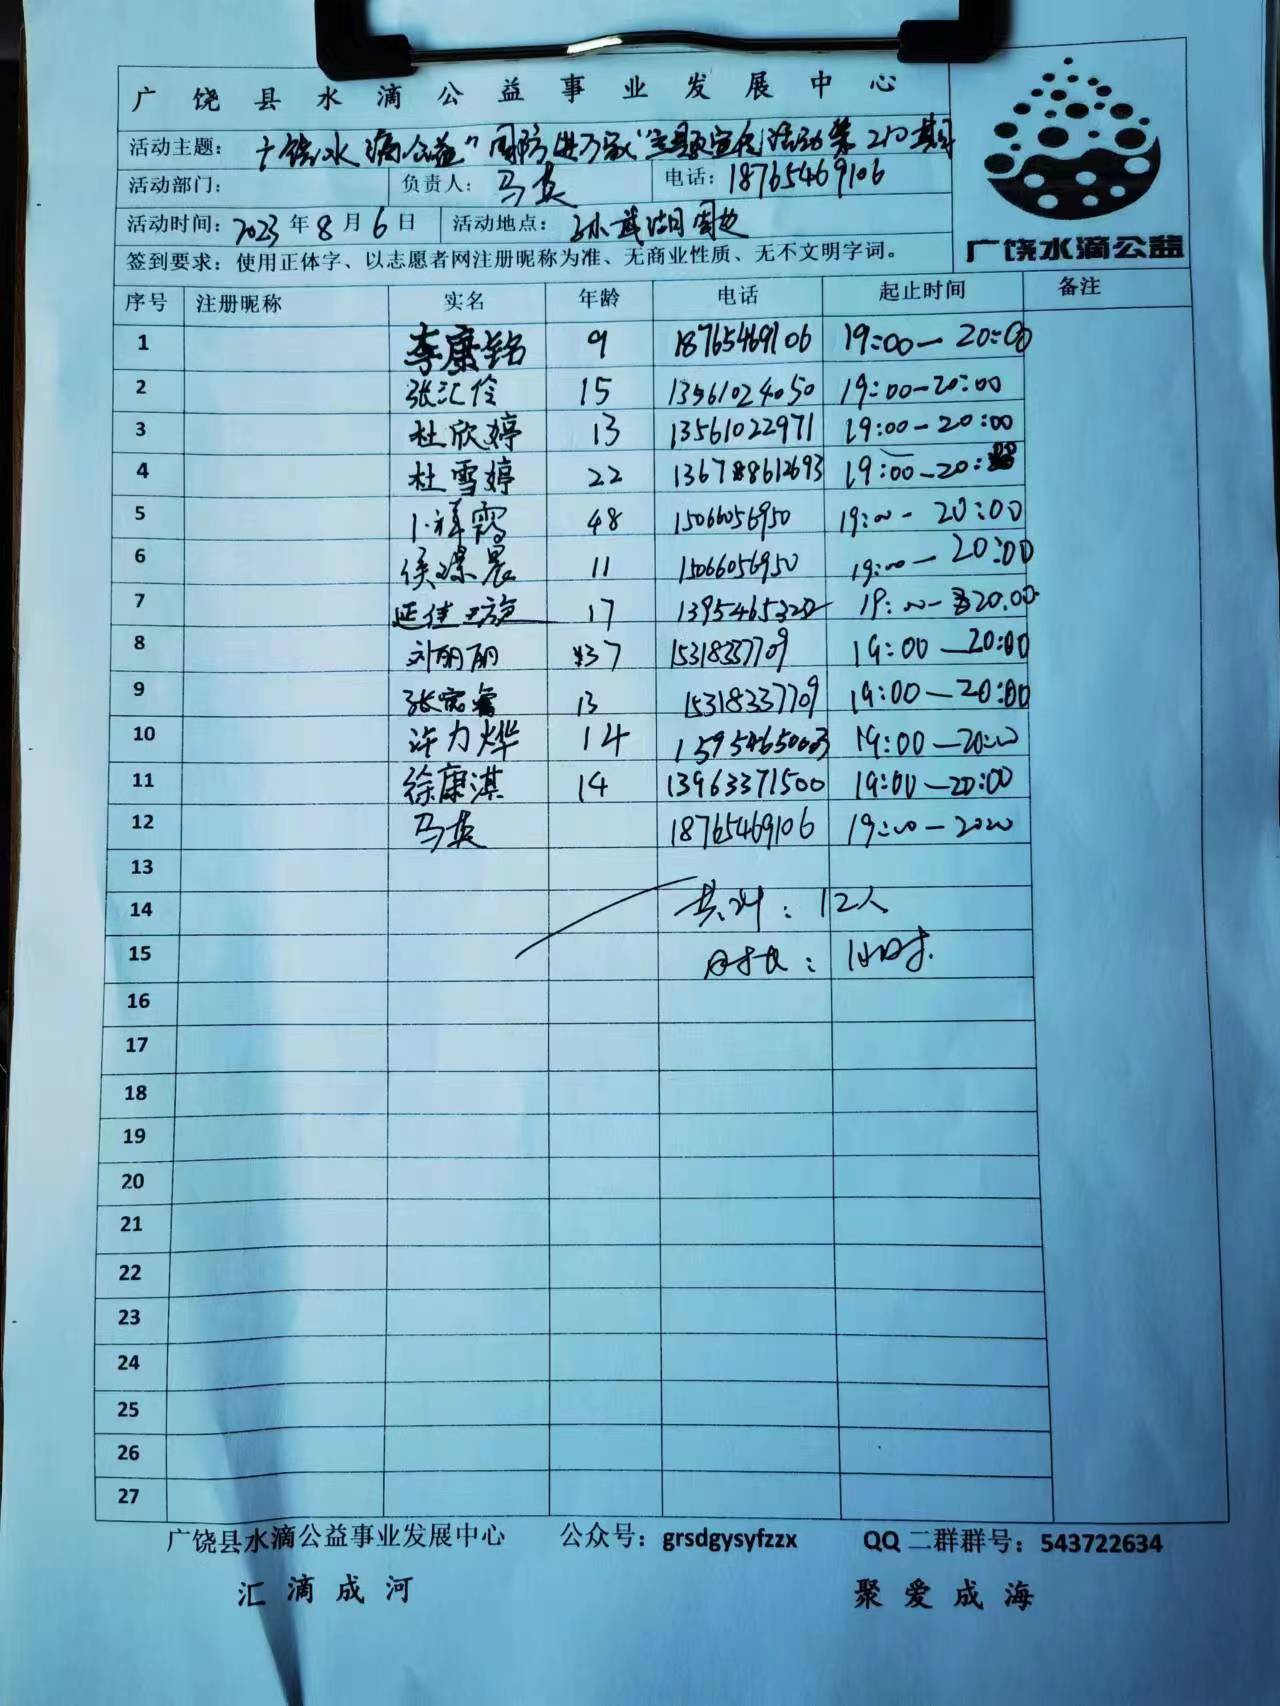 广饶县水滴公益事业发展中心
活动主题：广饶水滴公益"国防进万家"主题宣传活动第210期
活动部门： 负责人：马英 电话：18765469106
活动时间：2023年8月6日 活动地点：孙武湖周边
签到要求：使用正体字、以志愿者网注册昵称为准、无商业性质、无不文明字词。
广饶水滴公益
序号 注册昵称 实名 年龄 电话 起止时间 备注
1 李康铭 9 18765469106 19:00－20:00
2 张汇伶 15 13561024050 19:00-20:00
3 杜欣婷 13 13561022971 19:00-20:00
4 杜雪婷 22 19:00-20:
5 卜祥霞 48 15066056950 19:00- 20:00
6 侯璟晨 11 15066056950 19:00-20:00
7 延佳璇 17 19:00-20:00
8 刘丽丽 37 15318337709 19:00-20:00
9 13 15318337709 19:00-20:00
10 许力烨 14 19:00-20:00
11 徐康淇 14 13963371500 19:00-20:00
12 马英 18765469106 19:00-20:00
13
14 共计：12人
15 时长：1小时
16
17
18
19
20
21
22
23
24
25
26
27
广饶县水滴公益事业发展中心 公众号：grsdgysyfzzx QQ二群群号：543722634
汇滴成河 聚爱成海